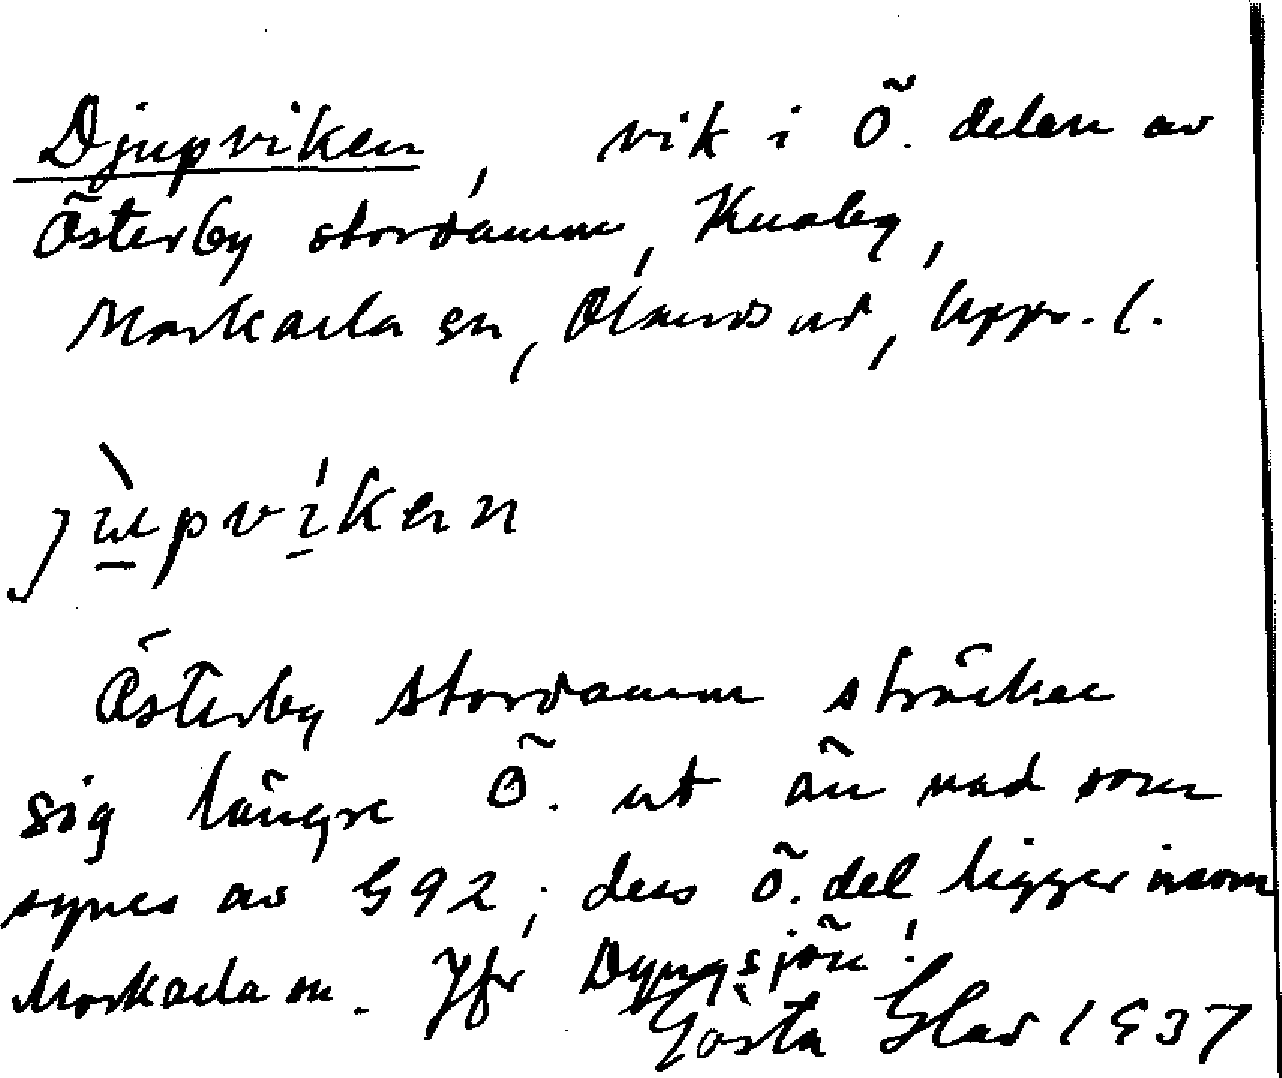 Djupviken, vik i Ö. delen av
Österby stordamm, Knaby,
Morkarla sn, Olands hd, Upps. l.
jùpvíken
Österby stordamm sträcker
sig längre Ö. ut än vad som
synes av G92; dess ö. del ligger inom
Morkarla sn. Jfr Dyngsjön!
Gösta Glad 1937